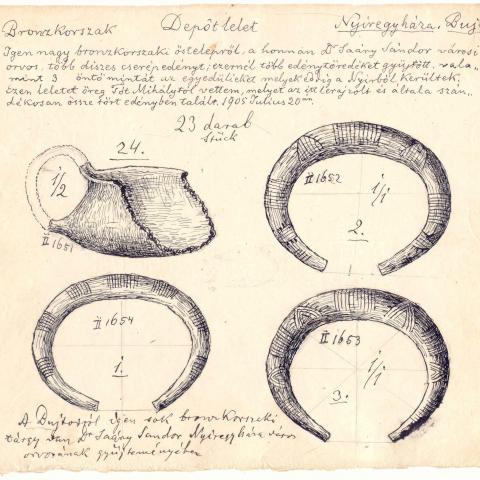 Bronzkorszak Depôtlelet Nyíregyháza. Bujt
Igen nagy bronzkorszaki őstelepről, a honnan Dr Saáry Sándor városi
orvos, több diszes cserép edényt, ezernél több edénytöredéket gyüjtött, vala„
mint 3 öntő mintát az egyedülieket melyek eddig a Nyírből kerültek,
Ezen leletet öreg Tót Mihálytól vettem, melyet az itt lerajzolt és általa szán„
dékosan össze tört edényben talált. 1905 Julius 20
23 darab
Stück
24.
1/2
II 1651
II 1652
1/1
2.
II 1654
1.
II 1653
1/1
3.
A Bujtosról igen sok bronzkorszaki
tárgy van Dr Saáry Sándor Nyiregyháza város
orvosának gyüjteményében